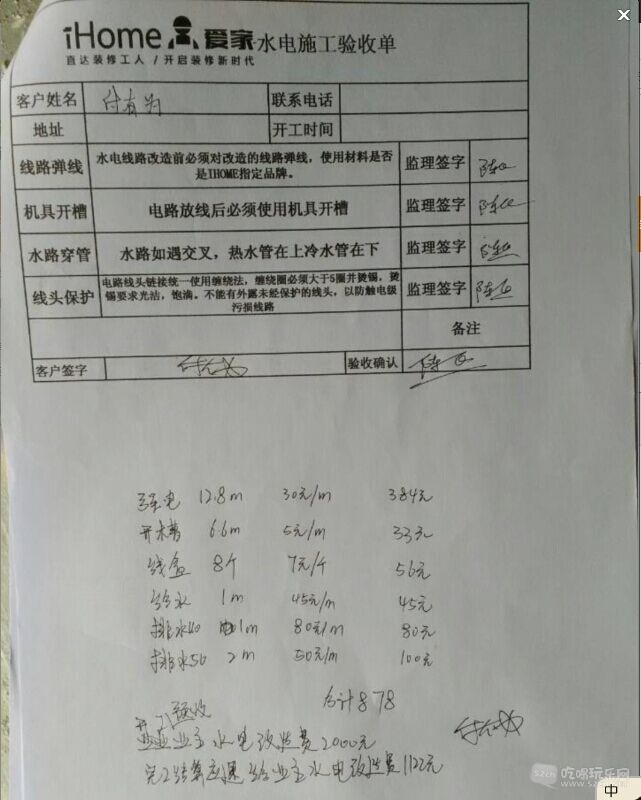 iHome 爱家 水电施工验收单
直达装修工人 / 开启装修新时代
客户姓名 付有为 联系电话
地址 开工时间
线路弹线 水电线路改造前必须对改造的线路弹线，使用材料是否是IHOME指定品牌。 监理签字
机具开槽 电路放线后必须使用机具开槽 监理签字
水路穿管 水路如遇交叉，热水管在上冷水管在下 监理签字
线头保护 电路线头链接统一使用缠绕法，缠绕圈必须大于5圈并烫锡，烫锡要求光洁，饱满。不能有外露未经保护的线头，以防触电级污损线路 监理签字
备注
客户签字 验收确认
强电 12.8m 30元/m 384元
开木槽 6.6m 5元/m 33元
线盒 8个 7元/个 56元
给水 1m 45元/m 45元
排水40 1m 80元/m 80元
排水50 2m 50元/m 100元
合计878
预收
业主水电改造费2000元
完工结算应退给业主水电改造费1122元
52ch 吃喝玩乐网
中